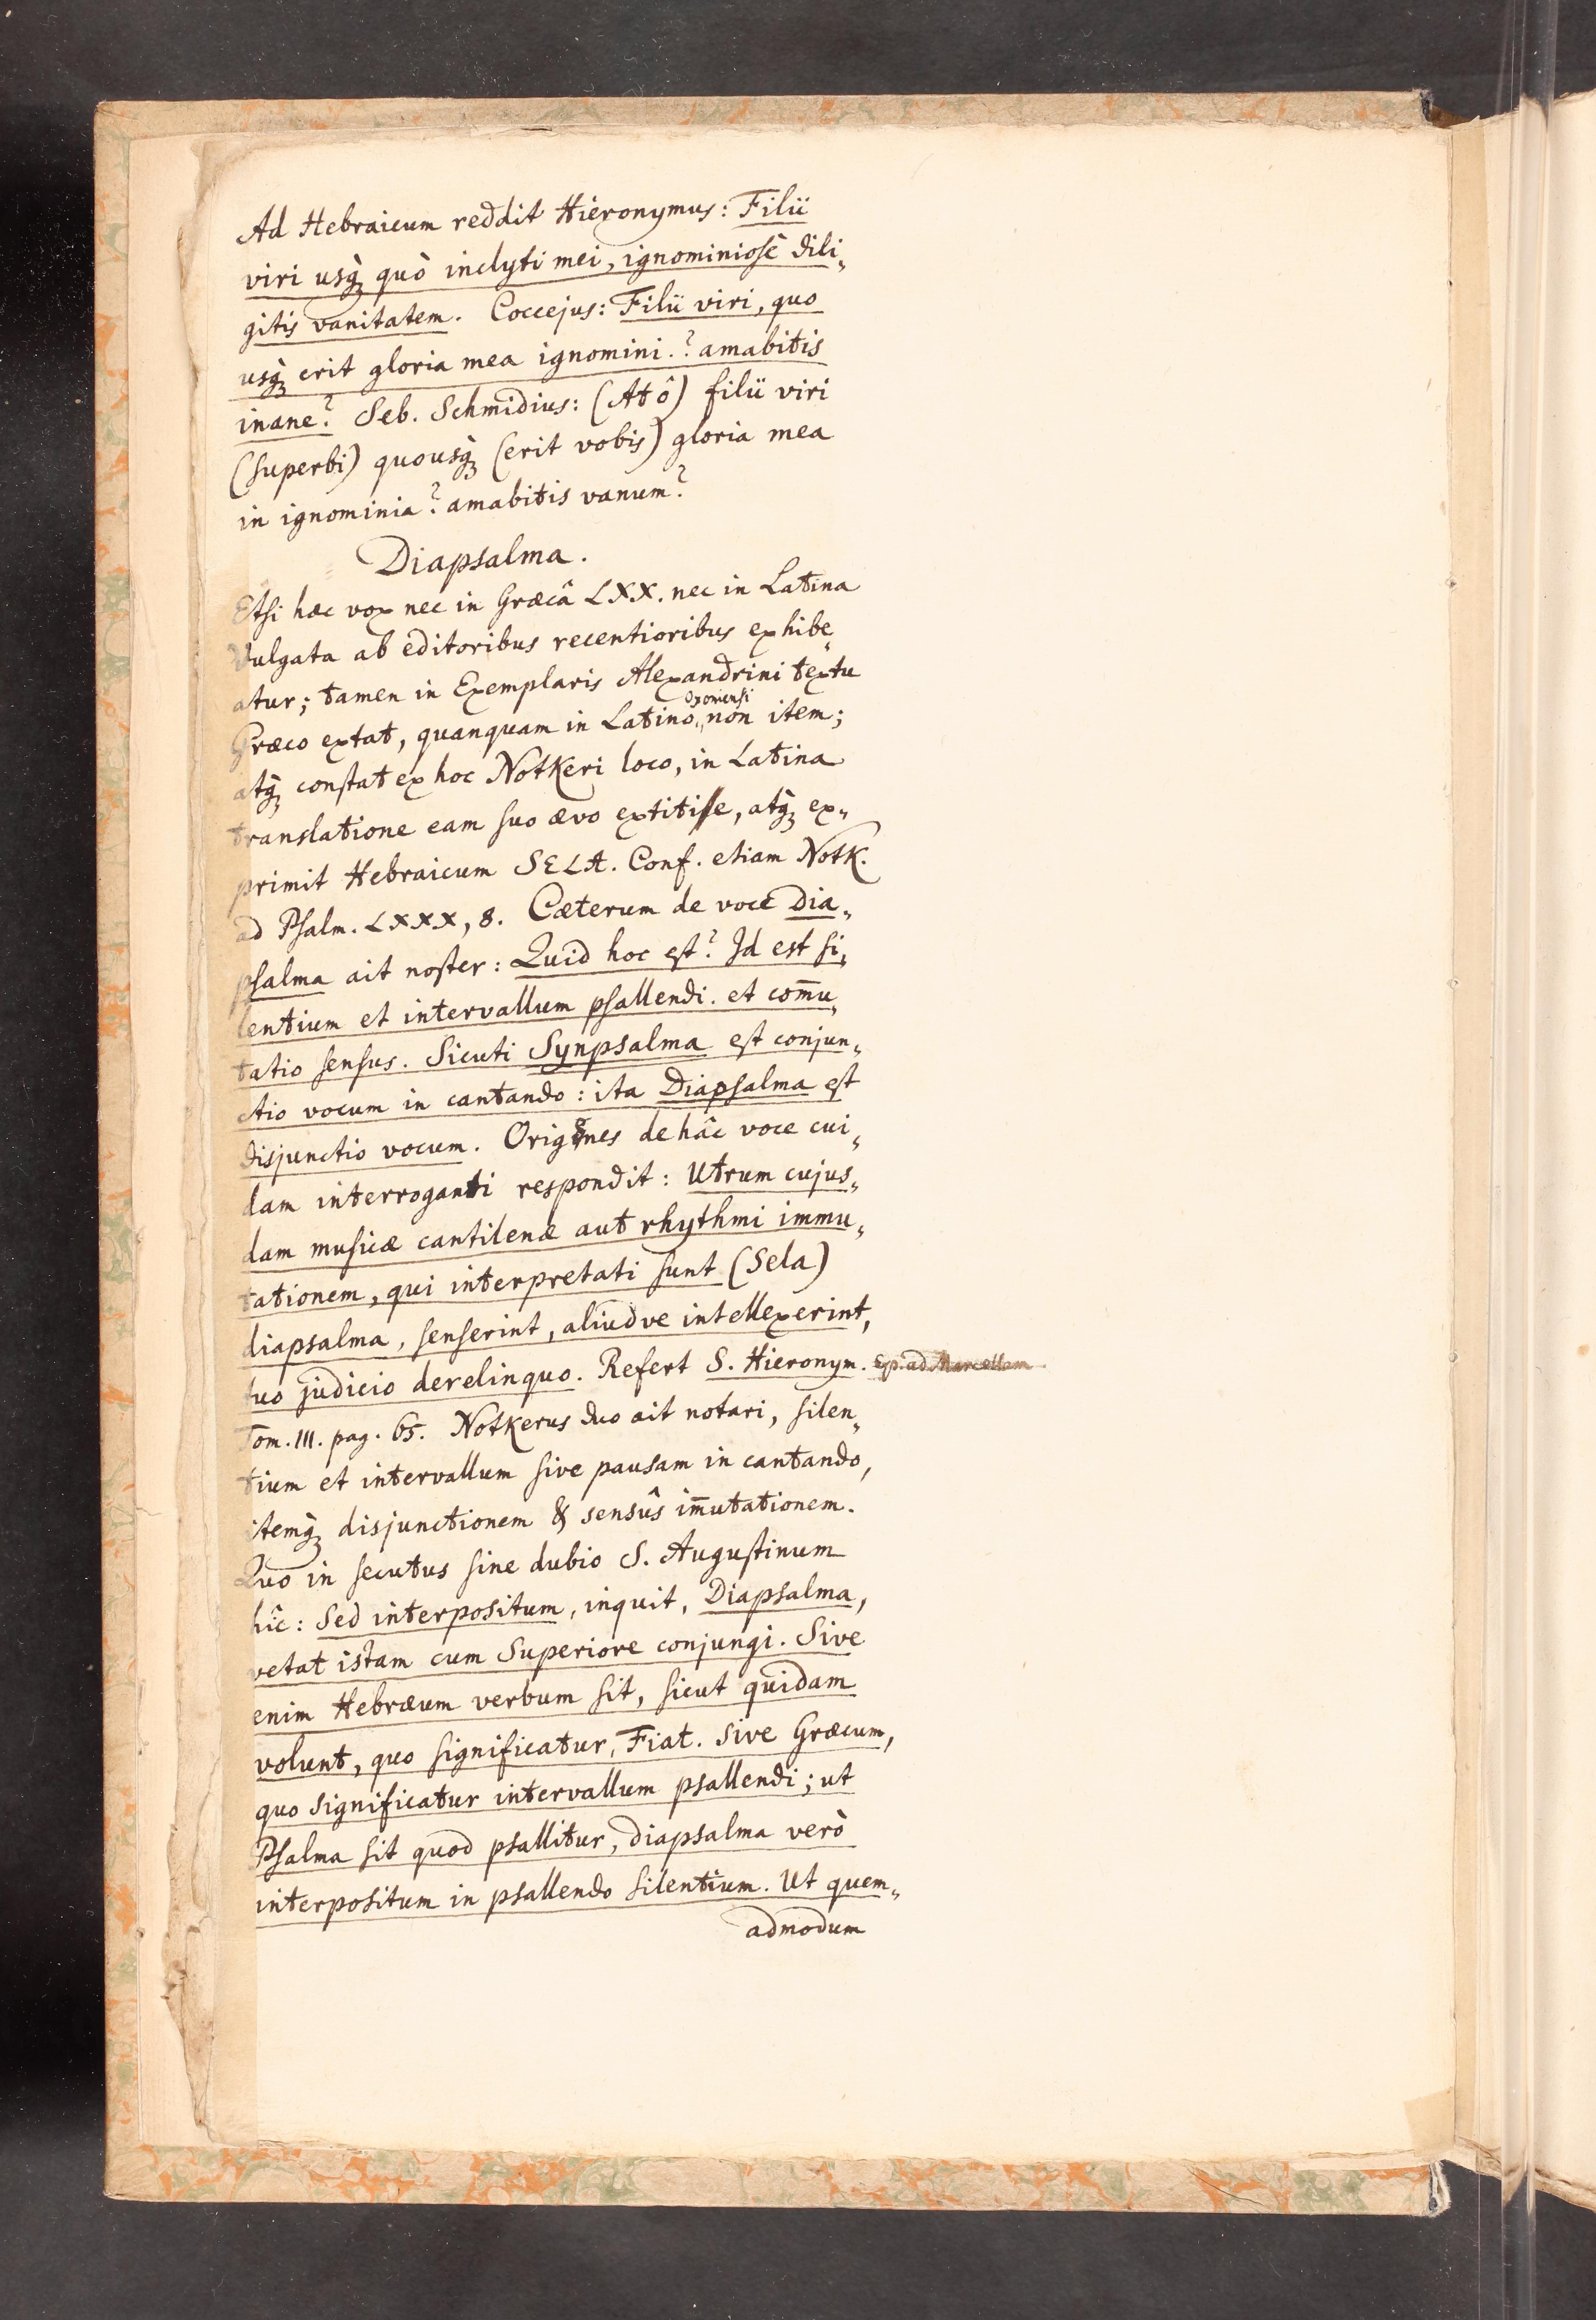 Ad Hebraicum reddit Hieronymus: Filii
viri usq̀ꝫ quò inclyti mei, ignominiosè dili„
gitis vanitatem. Coccejus: Filii viri, quo
usq̀ꝫ erit gloria mea ignomini.? amabitis
inane? Seb. Schmidius: (At ô) filii viri
(superbi) quousq̀ꝫ (erit vobis) gloria mea
in ignominia? amabitis vanum?
Diapsalma.
Etsi hæc vox nec in Græcâ LXX. nec in Latina
Vulgata ab editoribus recentioribus exhibe„
atur; tamen in Exemplaris Alexandrini textu
Græco extat, quanquam in Latino Oxoniensi non item;
atq̀ꝫ constat ex hoc Notkeri loco, in Latina
translatione eam suo ævo extitisse, atq̀ꝫ ex„
primit Hebraicum SELA. Conf. etiam Notk.
ad Psalm. LXXX, 8. Cæterum de voce Dia„
psalma ait noster: Quid hoc est? Id est si„
lentium et intervallum psallendi. et com̄u„
tatio sensus. Sicuti Synpsalma est conjun„
ctio vocum in cantando: ita Diapsalma est
disjunctio vocum. Origenes de hâc voce cui„
dam interroganti respondit: Utrum cujus„
dam musicæ cantilenæ aut rhythmi immu„
tationem, qui interpretati sunt (Sela)
diapsalma, senserint, aliudve intellexerint,
tuo judicio derelinquo. Refert S. Hieronym. Ep. ad Marcellam
Tom. III. pag. 65. Notkerus duo ait notari, silen„
tium et intervallum sive pausam in cantando,
itemq̀ꝫ disjunctionem & sensûs im̄utationem.
Quo in secutus sine dubio S. Augustinum
hîc: Sed interpositum, inquit, Diapsalma,
vetat istam cum Superiore conjungi. Sive
enim Hebræum verbum sit, sicut quidam
volunt, quo significatur, Fiat. sive Græcum,
quo significatur intervallum psallendi; ut
Psalma sit quod psallitur, diapsalma verò
interpositum in psallendo silentium. Ut quem„
admodum